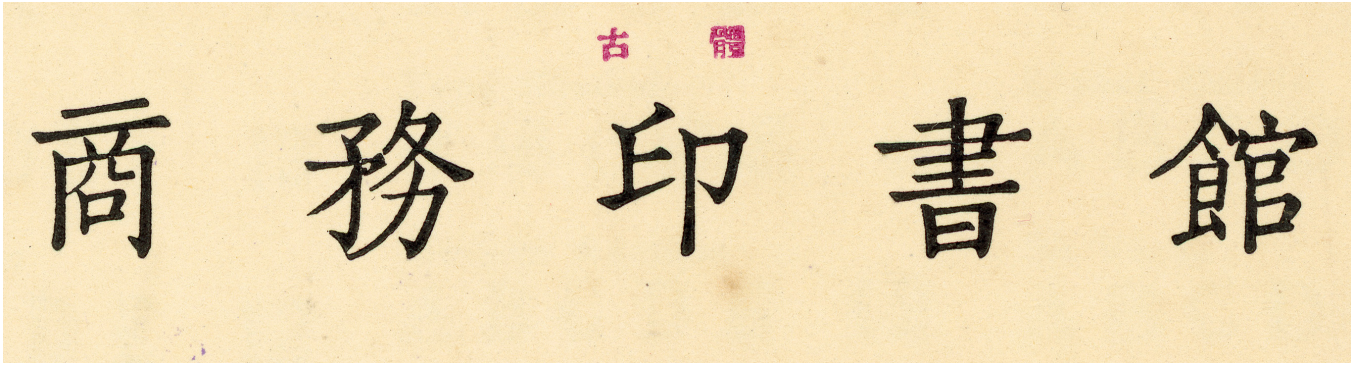 古體
商務印書館